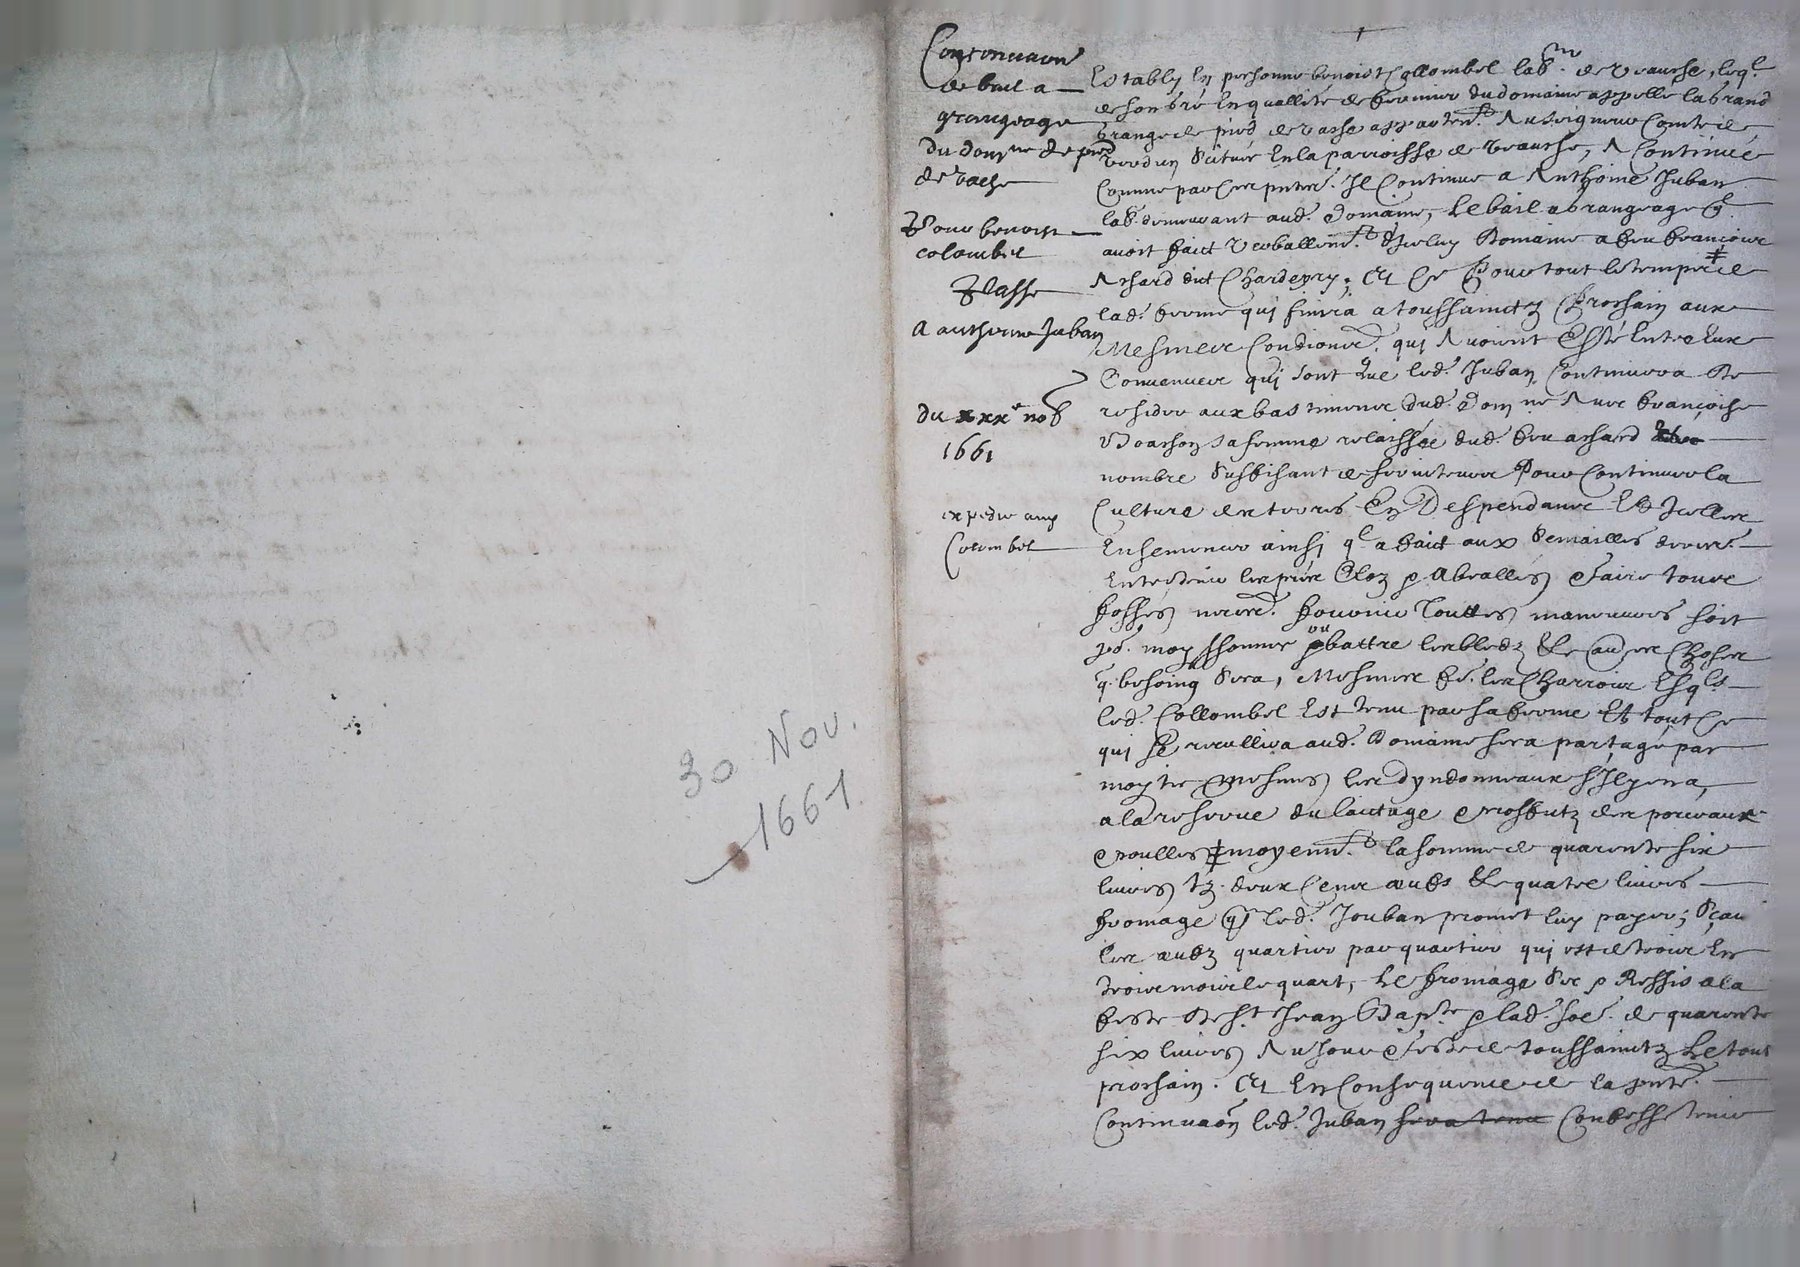 30 Nov.
1661
Continuaon
de bail a
grangeage
du domne de pied
de vache
Pour benoist
colombel
A anthoine Juban
du xxxe nob
1661
expedie aud
Colombel
Estably en personne benoist Collombel labr. de veausse, leql
de son gré en quallité de fermier du domaine appellé la grand
grange de pied de vache appartent. Au seigneur Comte de
verdun scitué en la parroisse de veausse, A Continué
Comme par ces pntes. Il Continue a Anthoine Juban
lab. demeurant aud. Domaine, le bail a grangeage ql
avoit faict verballemt. d'Iceluy Domaine a feu françois
Achard dict Chardeyry; Et Ce Pour tout le temps de
lad. ferme qui finira a toussainctz Prochain aux
Mesmes Conditions. qui Avoient Esté Entre Eux
Convenues qui sont que led. Juban Continuera De
resider aux bastimens dud. Domne Avec françoise
sa femme relaissée dud. feu achard
nombre suffisant de serviteurs Pour Continuer la
Culture des terres En Despendans Et Icelles
Ensemencer ainsy ql a faict aux semailles
Entretenir les prés Cloz & faire tous
fossés necers. fournir Touttes manoeuvres soit
po. moyssonner ou battre les bledz & autres Choses
q. besoing sera, Mesmes fe. les Charrois Esqls
led. Collombel Est tenu par sa ferme tout Ce
qui se recullira aud. Domaine sera partagé par
moytié Mesmes les dyndonneaux s'Il y en a,
a la reserve du laictage & proffitz des porceaux
& poulles moyennt. la somme de quarente six
livres tz. deux Cens oeufs & quatre livres
fromage que led. Jouban promet luy payer; Scav.
les oeufz quartier par quartier qui est de trois En
trois mois le quart, Le fromage Sec & Ressis a la
feste De St. Jean Bapte & lad. soe. de quarente
six livres Au jour & feste de toussainctz Le tout
prochain. Et En Consequence de la pnte.
Continuaon led. Juban sera tenu Confesse tenir